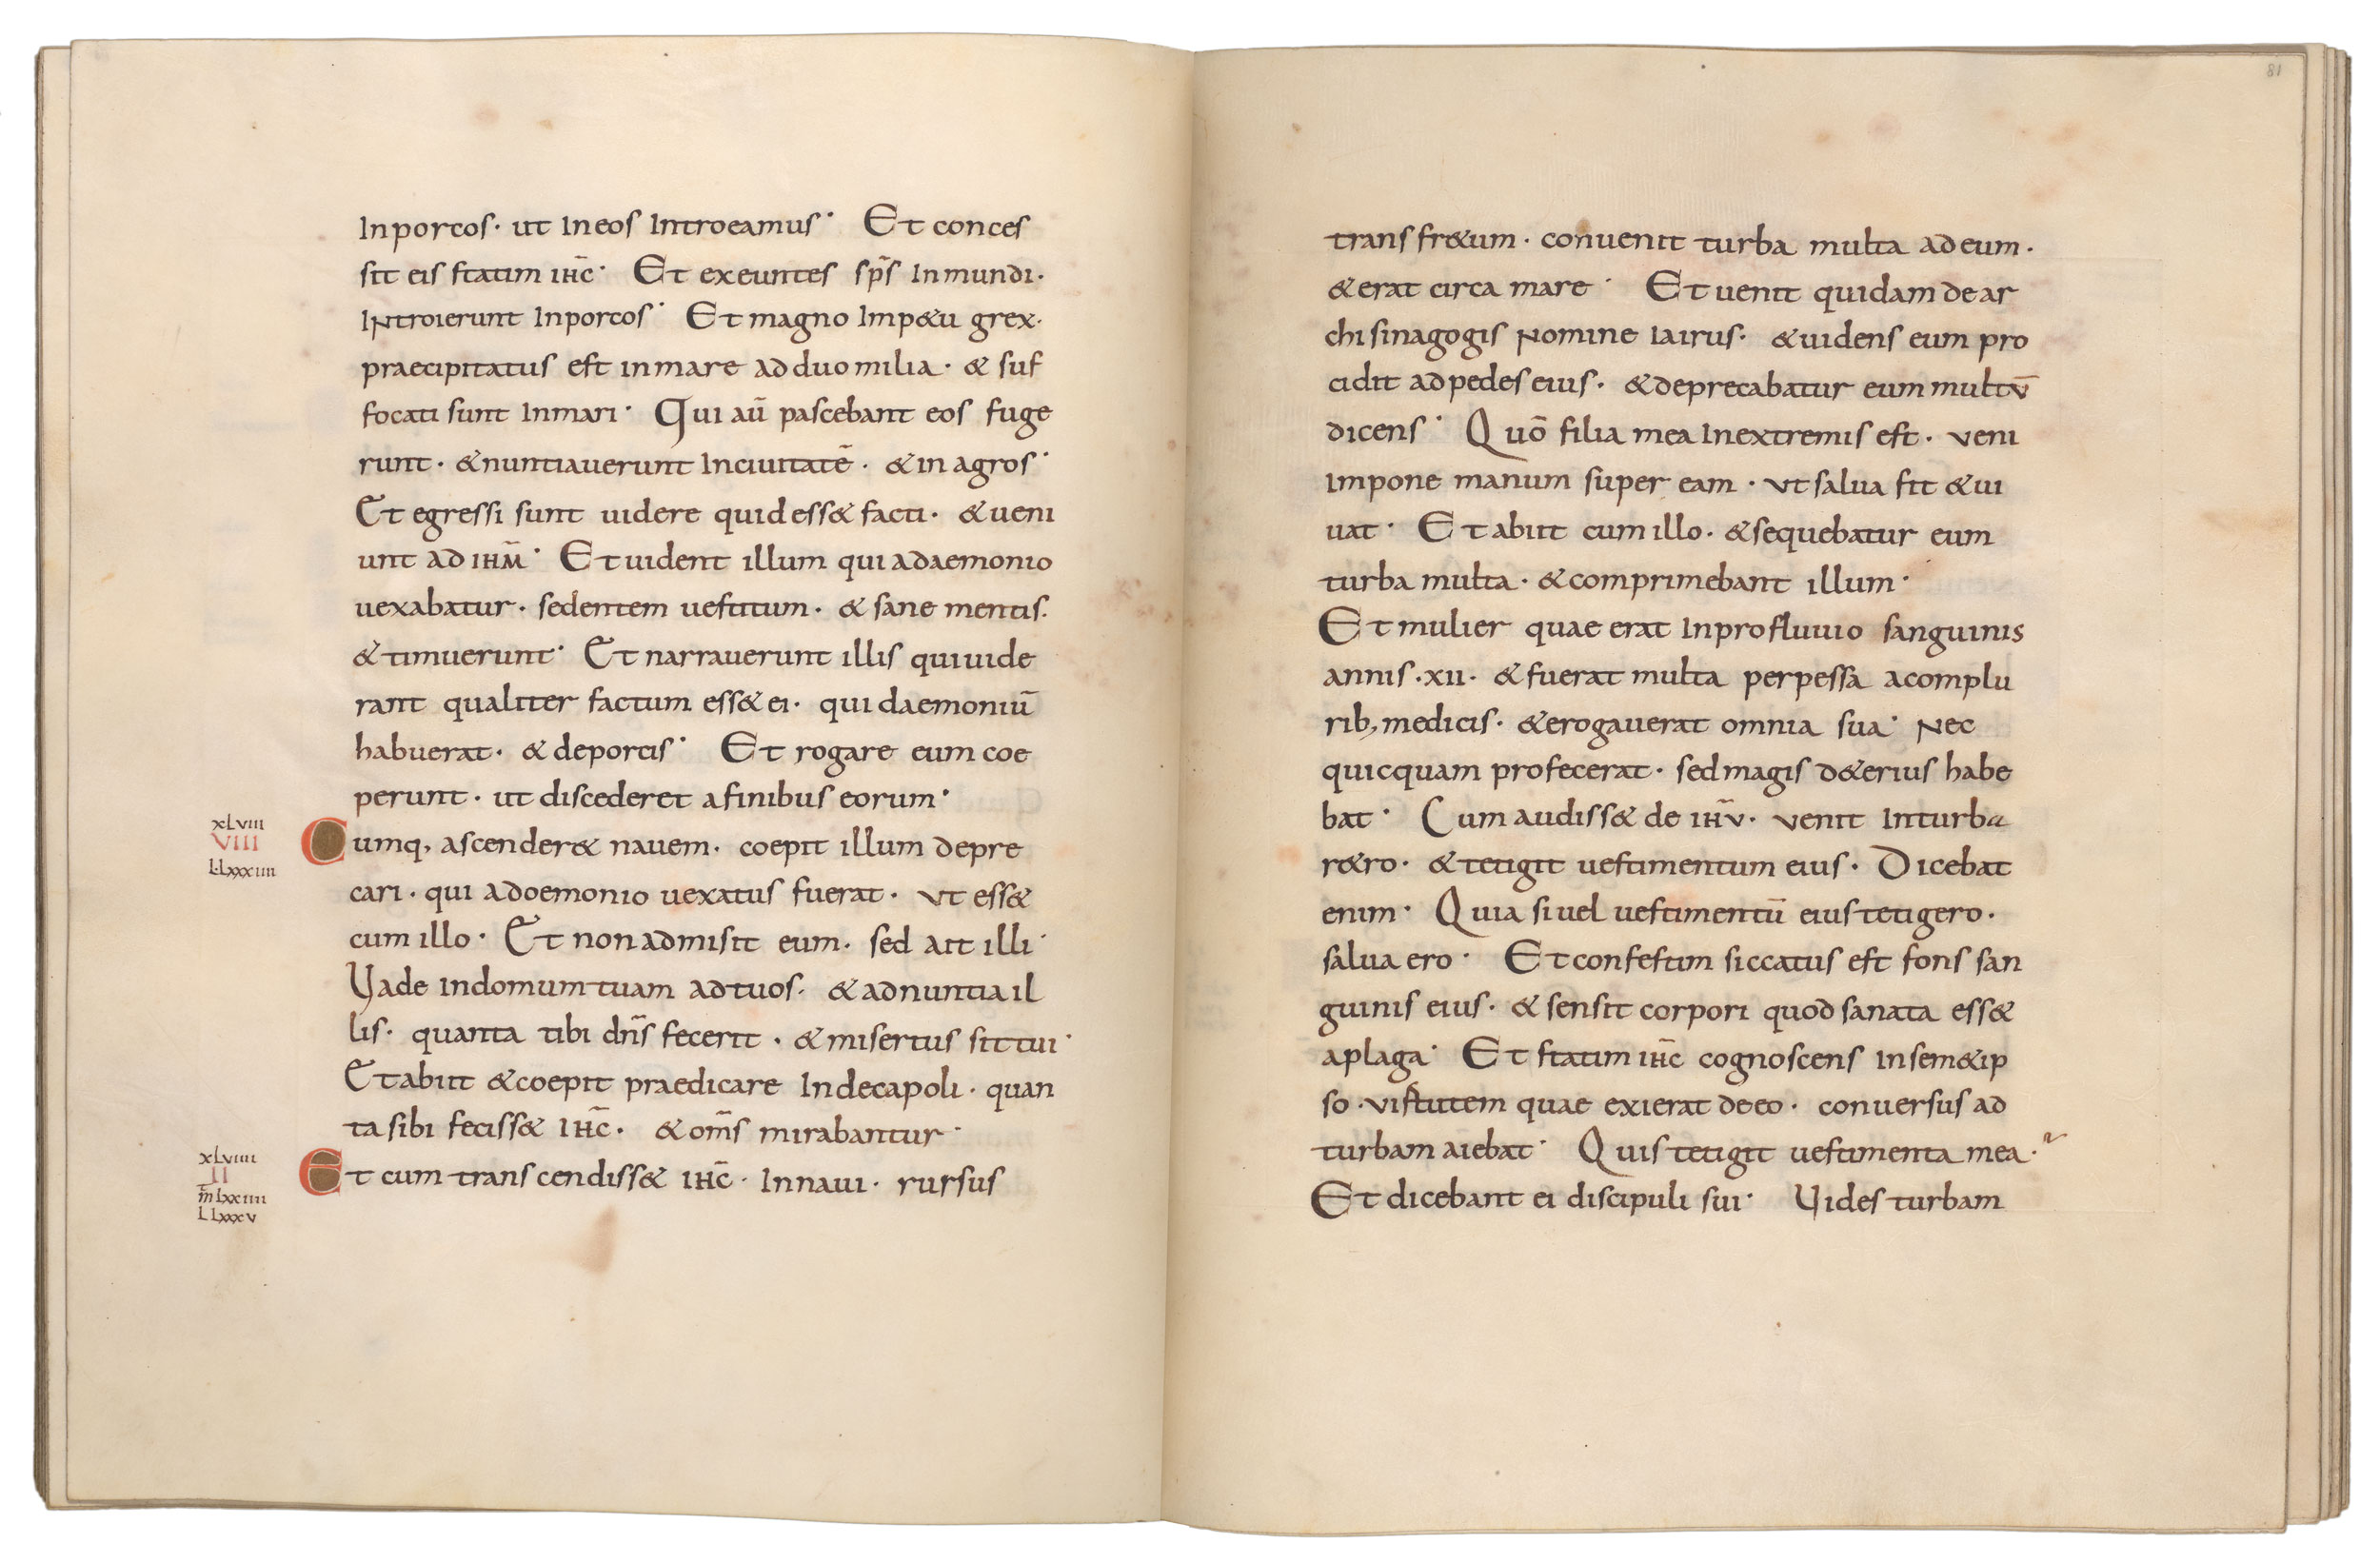 Inporcos· ut Ineos Introeamus· Et conces
sit eis statim ihc̄· Et exeuntes sp̄s Inmundi·
INtroierunt Inporcos· Et magno Imp&u grex·
praecipitatus est inmare ad duo milia· & suf
focati sunt Inmari· Qui aū pascebant eos fuge
runt· &nuntiauerunt Inciuitatē· &in agros·
Et egressi sunt uidere quid ess& facti· &ueni
unt ad ihm̄· Et uident illum qui adaemonio
uexabatur· sedentem uestitum· & sane mentis·
&timuerunt· Et narrauerunt illis quiuide
rant qualiter factum ess& ei· qui daemoniū
habuerat· & deporcis· Et rogare eum coe
perunt· ut discederet afinibus eorum·
xlviii
VIII
L·lxxxiiii
Cumq, ascender& nauem· coepit illum depre
cari· qui adoemonio uexatus fuerat· ut ess&
cum illo· Et non admisit eum· sed ait illi·
Vade Indomum tuam adtuos· & adnuntia il
lis· quanta tibi dn̄s fecerit· & misertus sit tui·
Et abiit &coepit praedicare Indecapoli· quan
ta sibi feciss& ihc̄· & om̄s mirabantur·
xlviiii
II
m̄ lxxiiii
L lxxxv
Et cum transcendiss& ihc̄· Innaui· rursus
81
trans fr&um· conuenit turba multa adeum·
&erat circa mare· Et uenit quidam de ar
chisinagogis Nomine Iairus· &uidens eum pro
cidit adpedes eius· &deprecabatur eum multū
dicens· Quō filia mea Inextremis est· veni
Impone manum super eam· ut salua sit &ui
uat· Et abiit cum illo· &sequebatur eum
turba multa· &comprimebant illum·
Et mulier quae erat Inprofluuio sanguinis
annis·xii· &fuerat multa perpessa acomplu
rib, medicis· &erogauerat omnia sua· Nec
quicquam profecerat· sed magis d&erius habe
bat· Cum audiss& de ihū· venit Inturba
r&ro· &tetigit uestimentum eius· Dicebat
enim· Quia si uel uestimentū eius tetigero·
salua ero· Et confestim siccatus est fons san
guinis eius· & sensit corpori quod sanata ess&
aplaga· Et statim ihc̄ cognoscens Insem&ip
so· virtutem quae exierat deeo· conuersus ad
turbam aiebat· Quis tetigit uestimenta mea·
Et dicebant ei discipuli sui· Vides turbam